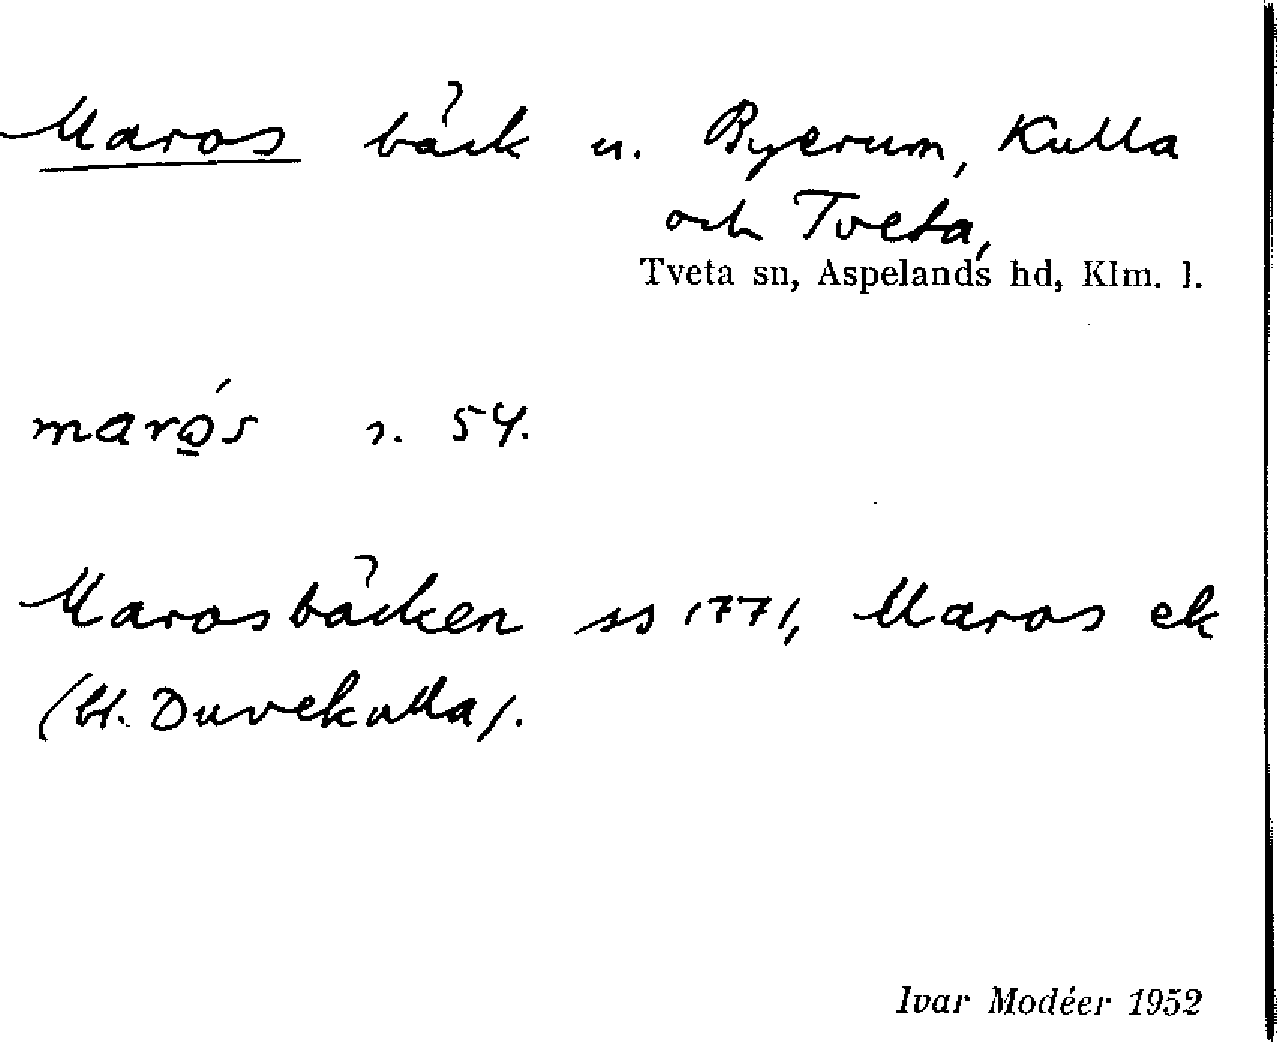 Maros bäck u. Byerum, Kulla
och Tveta,
Tveta sn, Aspelands hd, Klm. l.
marǫ́s s. 54.
Marosbäcken ss 1771, Maros ek
(bl. Duvekulla).
Ivar Modéer 1952